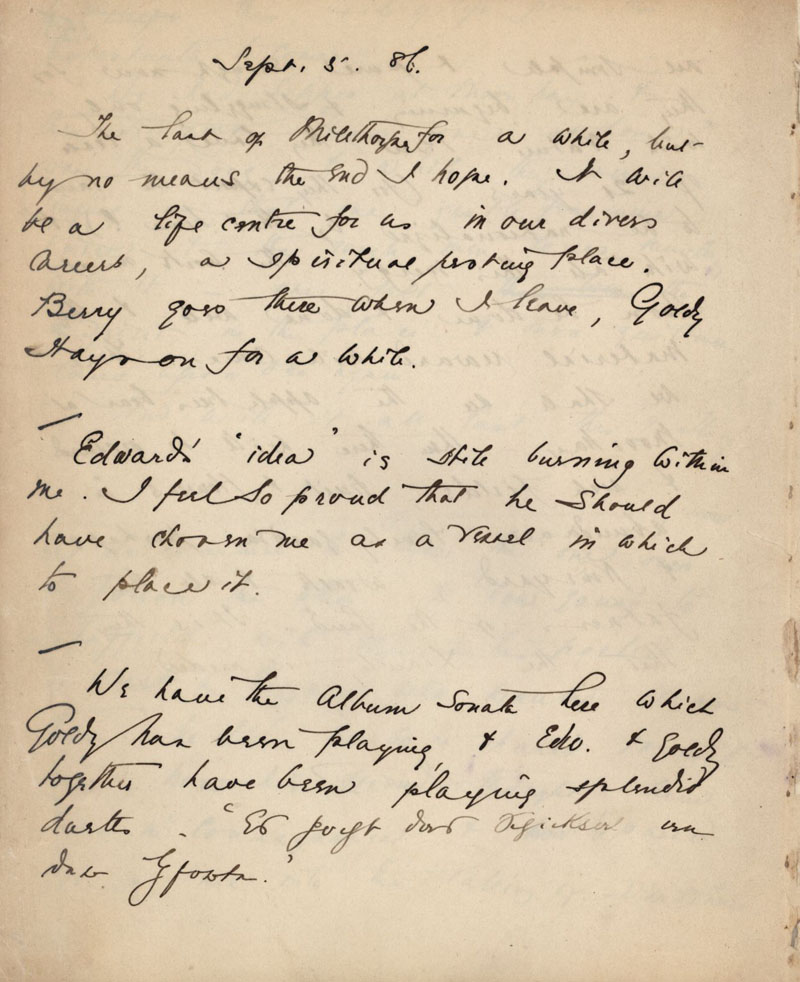 Sept. 5. 86.
The last of Millthorpe for a while, but
by no means the end I hope. It will
be a life centre for us in our divers
careers, a spiritual resting place.
Berry goes there when I leave, Goldy
stays on for a while.
Edward's "idea" is still burning within
me. I feel so proud that he should
have chosen me as a vessel in which
to place it.
We have the Album Sonata here which
Goldy has been playing, & Edw. & Goldy
together have been playing splendid
duetts. "Es pocht das Schicksal an
Pforte."